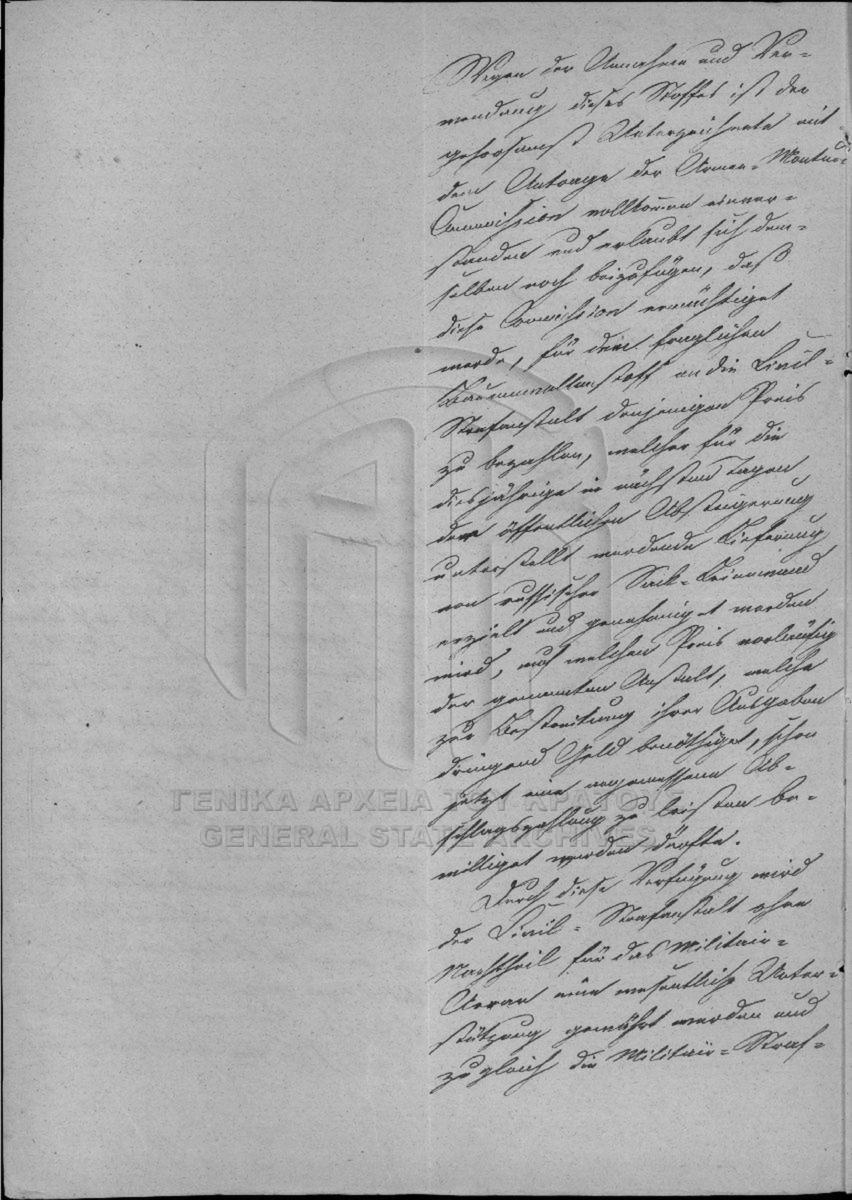 Wegen der Annahme und Ver-
wendung dieses Stoffes ist der
gehorsamst Unterzeichnete mit
dem Antrage der Armee-Montur-
Commission vollkommen einver-
standen und erlaubt sich dem-
selben noch beizufügen, daß
diese Commission ermächtiget
werde, für den fraglichen
Baumwollenstoff an die Civil-
Strafanstalt denjenigen Preis
zu bezahlen, welcher für die
diesjährige in nächsten Tagen
der öffentlichen Absteigerung
unterstellt werdende Lieferung
von russischer Sack-Leinwand
erzielt und genehmiget werden
wird, auf welchen Preis vorläufig
der genannten Anstalt, welche
zur Bestreitung ihrer Ausgaben
dringend Geld benöthiget, schon
jetzt eine angemessene Ab-
schlagszahlung zu leisten be-
williget werden dürfte.
Durch diese Verfügung wird
der Civil-Strafanstalt ohne
Nachtheil für das Militair-
Aerar eine wesentliche Unter-
stützung gewährt werden und
zugleich die Militair-Straf-
ΓΕΝΙΚΑ ΑΡΧΕΙΑ ΤΟΥ ΚΡΑΤΟΥΣ
GENERAL STATE ARCHIVES